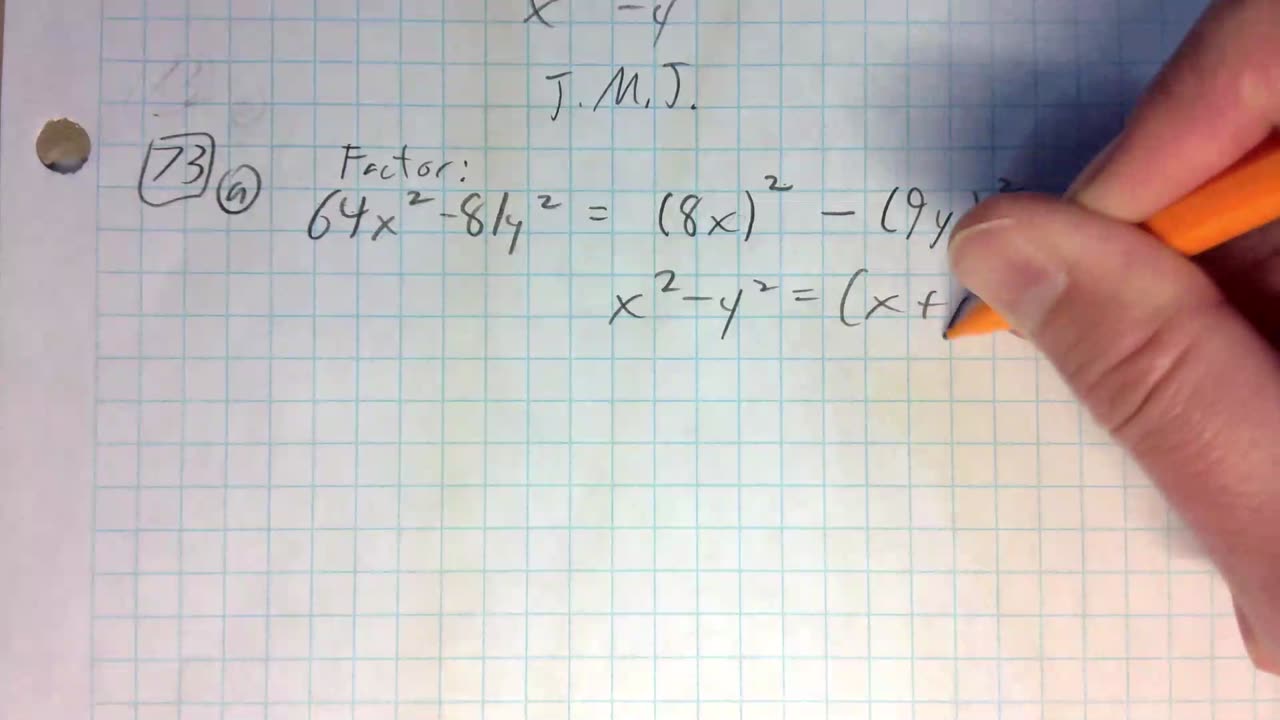 x -y
J.M.J.
73 a Factor:
64x² -81y² = (8x)² - (9y)²
x² - y² = (x +